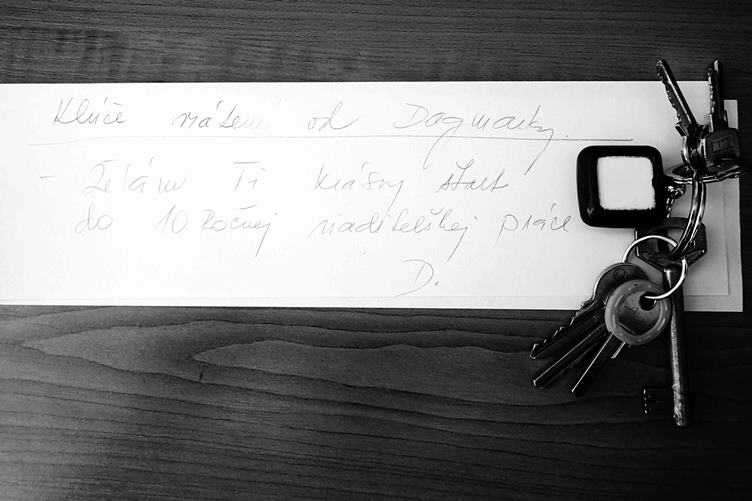 Kľúče riadení od Dagmarky.
- Želám Ti krásny štart
do 10 ročnej riaditeľskej práce
D.